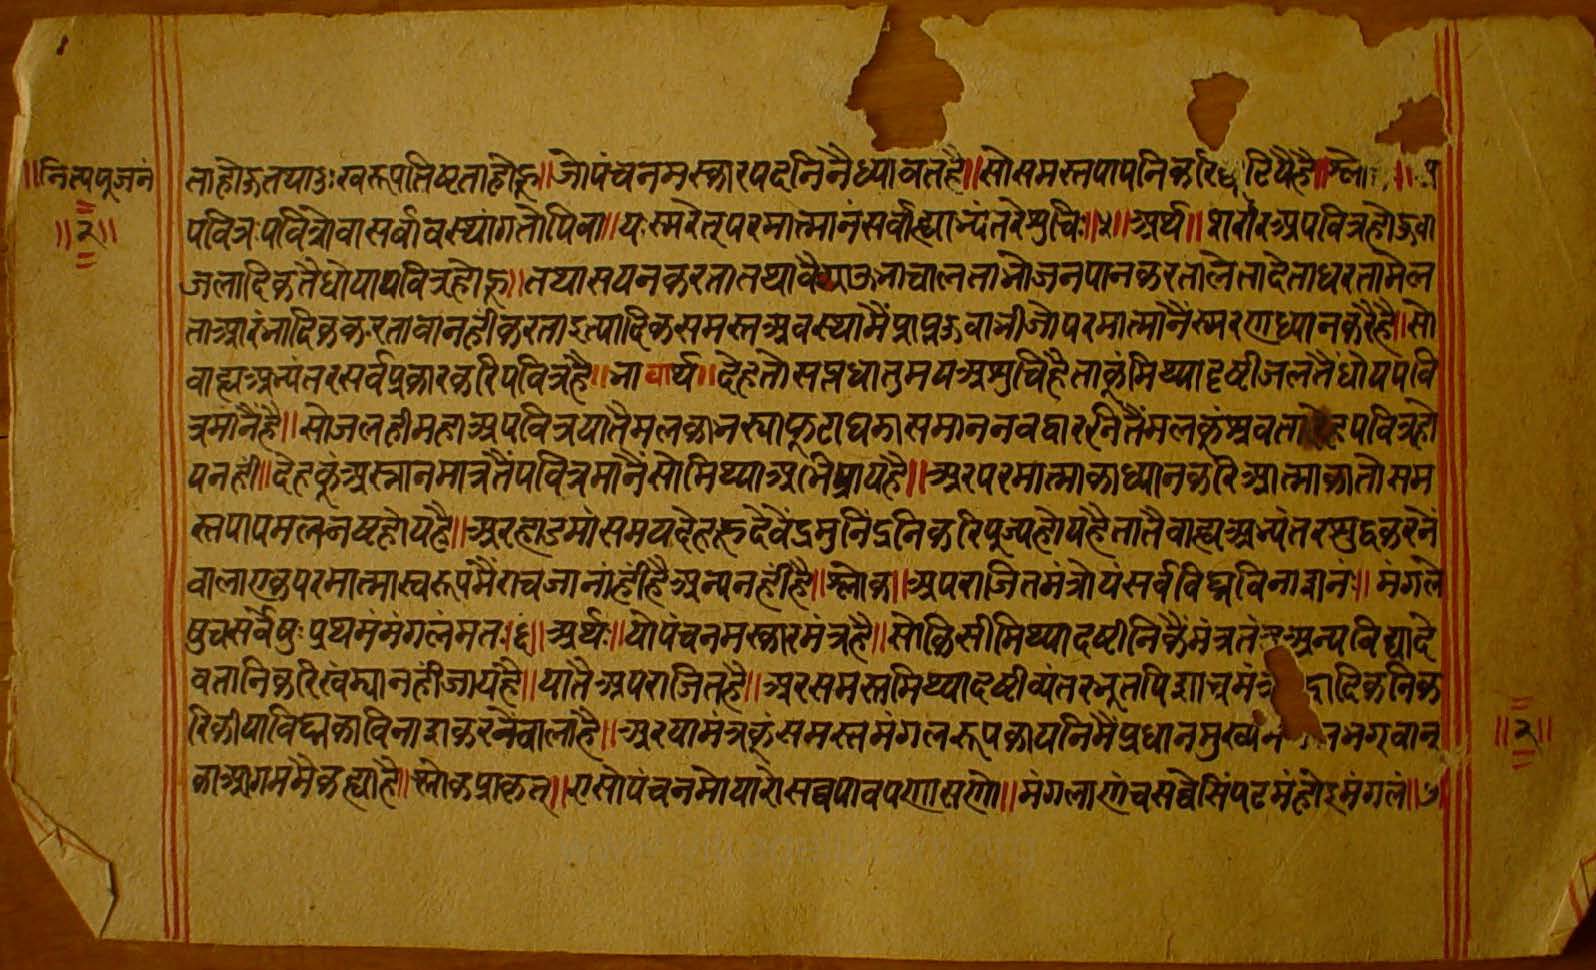 ॥नित्यपूजनं
॥२॥
ताहोऊतथादुःखरूपतिष्टताहोहू॥जोपंचनमस्कारपदनिनैध्यावतहै॥सोसमस्तपापनिकरि टियैहै॥श्लो
पवित्रःपवित्रोवासर्वावस्थांगतोपिवा॥यःस्मरेत्परमात्मानंसर्वाह्याभ्यंतरेशुचिः॥५॥अर्थ॥शरीरअपवित्रहोऊवा
जलादिकतैधोयापवित्रहोहू॥तथासयनकरतातथावैठाऊभाचालताभोजनपानकरतालेतादेताधरतामेल
ताआरंभादिककरतावानहीकरताइत्यादिकसमस्तअवस्थामैंप्राप्तऊवाभीजोपरमात्मानैंस्मरणध्यानकरैहै॥सो
वाह्यअभ्यंतरसर्वप्रकारकरिपवित्रहै॥भावार्थ॥देहतोसप्तधातुमयअशुचिहैताकूंमिथ्यादृष्टीजलतैंधोयपवि
त्रमांनैहै॥सोजलहीमहाअपवित्रयातैमलकाभस्याफूटाघडासमाननवद्वारनितैंमलकूंश्रवता पवित्रहो
यनहीं॥देहकूंअस्नानमात्रतैंपवित्रमानैंसोमिथ्याअभिप्रायहै॥अरपरमात्माकाध्यानकरिआत्माकातोसम
स्तपापमलनष्टहोयहै॥अरहाडमांसमयदेहहूदेवेंद्रमुनिंद्रनिकरिपूज्यहोयहैतातैवाह्यअभ्यंतरशुद्धकरनें
वालाएकपरमात्मास्वरूपमैंराचजानांहींहैअन्यनहींहै॥श्लोक॥अपराजितमंत्रोयंसर्वविघ्नविनाशनं॥मंगले
षुचसर्वेषुःप्रथमंमंगलंमतः॥६॥अर्थः॥योपंचनमस्कारमंत्रहै॥सोकिसीमिथ्यादष्टीनिकैमंत्रतं अन्यविद्यादे
वतानिकरिखंम्यानहींजायहै॥यातैअपराजितहै॥अरसमस्तमिथ्यादष्टीव्यंतरभूतपिशाचमंत्र दिकनिक
रिकीयाविघ्नकाविनाशकरनैवालाहै॥अरयामंत्रकूंसमस्तमंगलरूपकार्यनिमैंप्रधानमुख्य भगवान्
काआगममैकह्याहै॥श्लोकप्राकृत॥एसोपंचनमोयारोसव्वपावपणासणो॥मंगलाणंचसव्वेसिंपढमंहोइमंगलं॥७
॥२॥